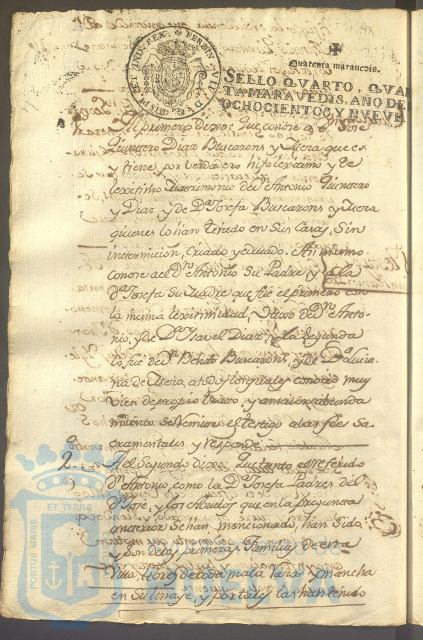 Quarenta marauedis.
SELLO QVARTO, QVAR
TA MARAVEDIS, AÑO DE
OCHOCIENTOS Y NVEVE
Al primero dixo: que conoce a Dn. Jose
Quintero Diaz Buscarons y Mera que es
y tiene por verdadero hijo lexitimo y de
lexitimo Matrimonio de Dn. Antonio Quintero
y Diaz, y de Da. Josefa Buscarons y Mera
quienes lo han tenido en sus Casas, Sin
intermicion, criado y educado. Asi mismo
conoce a Dn. Antonio su Padre y a la
Da. Josefa su Madre que fue el primero con
la misma lexitimidad, de Dn. Anto-
nio, y de Da. Isavel Diaz, y la segunda
lo fue de Dn. Benito Buscarons, y de Da. Lucia-
na de Mera, a todos los quales conocio muy
vien de propio trato y a maior abunda
miento se remite el testigo a las fees Sa-
cramentales y responde
2. Al Segundo dixo: que tanto el referido
Dn. Antonio, como la Da. Josefa Padres del
Dn. Jose, y los Abuelos que en la pregunta
anterior se han mencionado, han sido
y son de las primeras Familias de esta
Villa, libres de toda mala raza y mancha
en su linaje, y por tales las han tenido
PORTUS MARIS ET TERRÆ